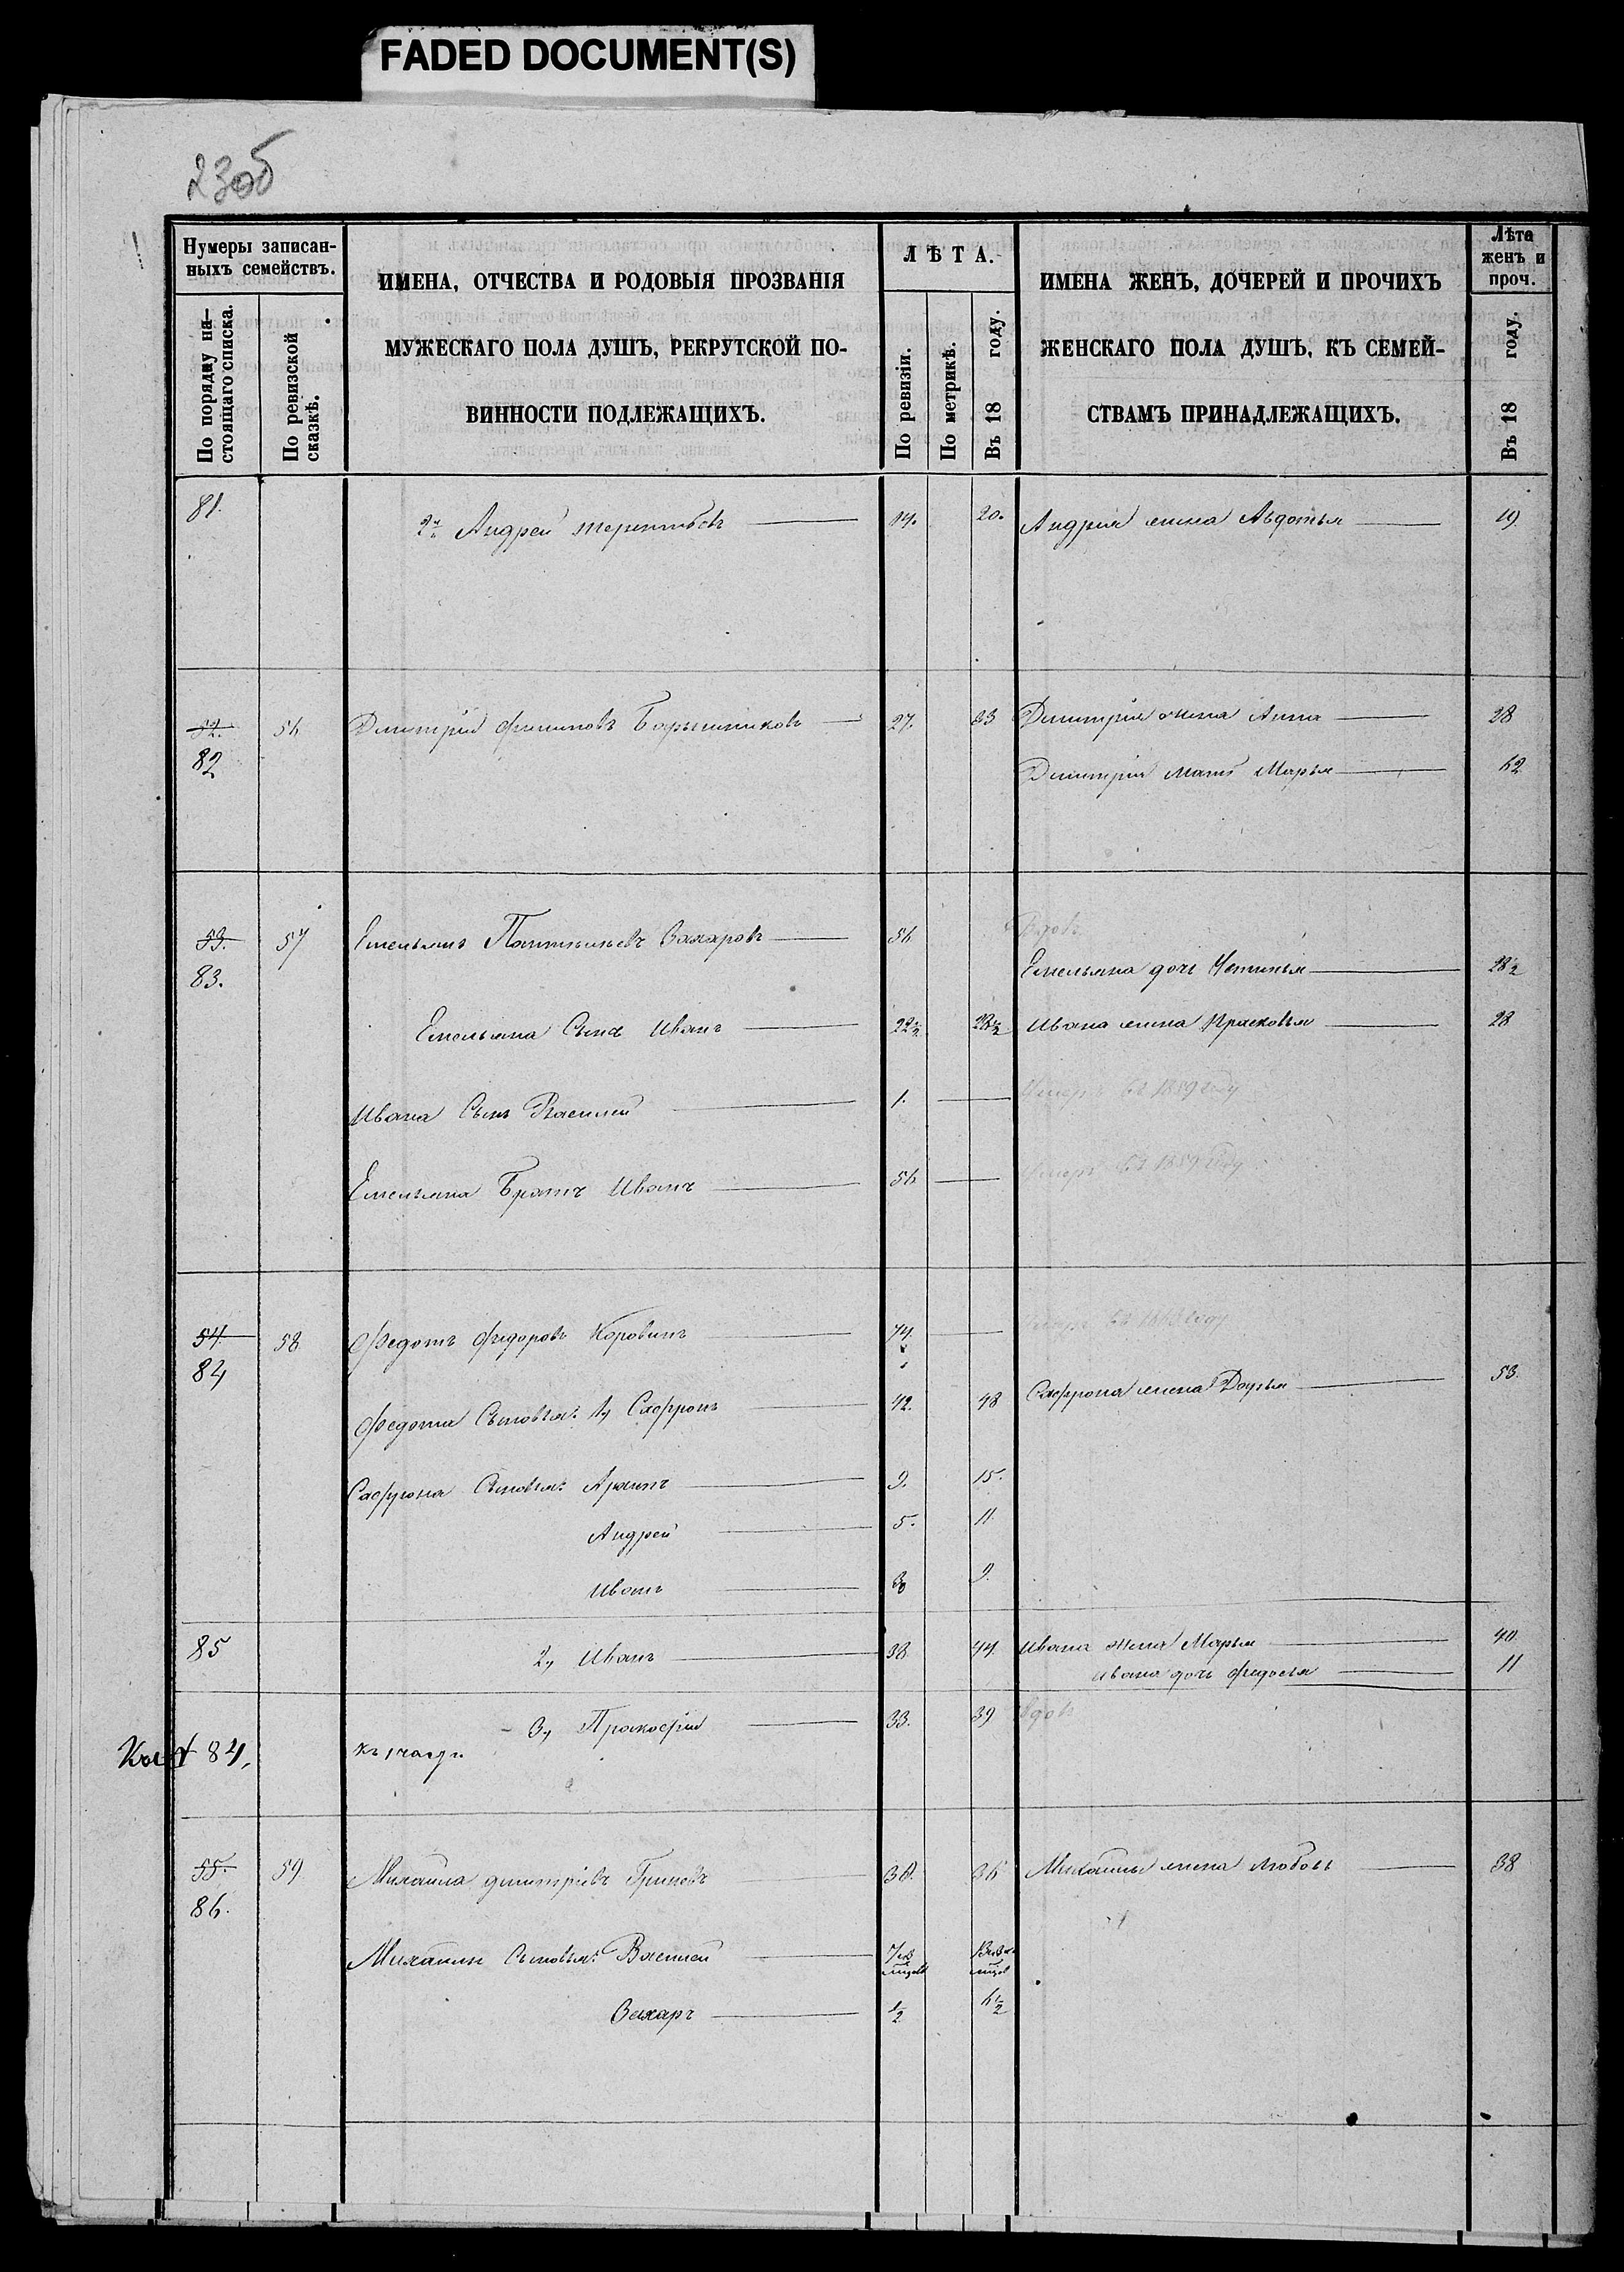 FADED DOCUMENT(S)
23об
Нумеры записан-
ныхъ семействъ.
По порядку на-
стоящаго списка.
По ревизской
сказкѣ.
ИМЕНА, ОТЧЕСТВА И РОДОВЫЯ ПРОЗВАНІЯ
МУЖЕСКАГО ПОЛА ДУШЪ, РЕКРУТСКОЙ ПО-
ВИННОСТИ ПОДЛЕЖАЩИХЪ.
ЛѢТА.
По ревизіи.
По метрикѣ.
Въ 18 году.
ИМЕНА ЖЕНЪ, ДОЧЕРЕЙ И ПРОЧИХЪ
ЖЕНСКАГО ПОЛА ДУШЪ, КЪ СЕМЕЙ-
СТВАМЪ ПРИНАДЛЕЖАЩИХЪ.
Лѣта
женъ и
проч.
Въ 18 году.
81. 2й Андрей Терентьевъ 14. 20. Андрея жена Авдотья 19
52. 56 Дмитрій Филиповъ Барышниковъ 27. 33 Дмитрія жена Анна 28
82 Дмитрія мать Марья 62
53. 57 Емельянъ Захаровъ 56 Вдовъ
83. Емельяна дочь Устинья 28½
Емельяна Сынъ Иванъ 22½ 28½ Ивана жена Прасковья 28
Ивана Сынъ Василий 1. Умеръ въ 1859 году
Емельяна Братъ Иванъ 56 Умеръ въ 1859 году
54 58 Федотъ Федоровъ Коровинъ 74. Умеръ въ 1863 году
84 Федота Сыновья: 1, Сафронъ 42. 48 Сафрона жена Дарья 53.
Сафрона Сыновья: Архипъ 9. 15.
Андрей 5. 11.
Иванъ 3 9.
85 2, Иванъ 38. 44. Ивана жена Марья 40.
Ивана дочь Федосья 11
3, Прокофій 33. 39 Вдовъ
84.
55. 59 Михайла Дмитріевъ Гриневъ 30. 36 Михайлы жена Любовь 38
86. Михайлы Сыновья: Василей
Захаръ ½ 6½